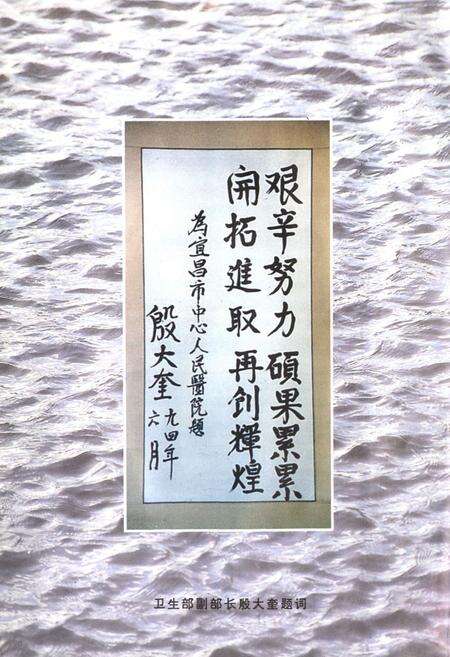 艰辛努力 碩果累累
開拓進取 再創輝煌
為宜昌市中心人民醫院題
殷大奎 九四年
六月
卫生部副部长殷大奎题词